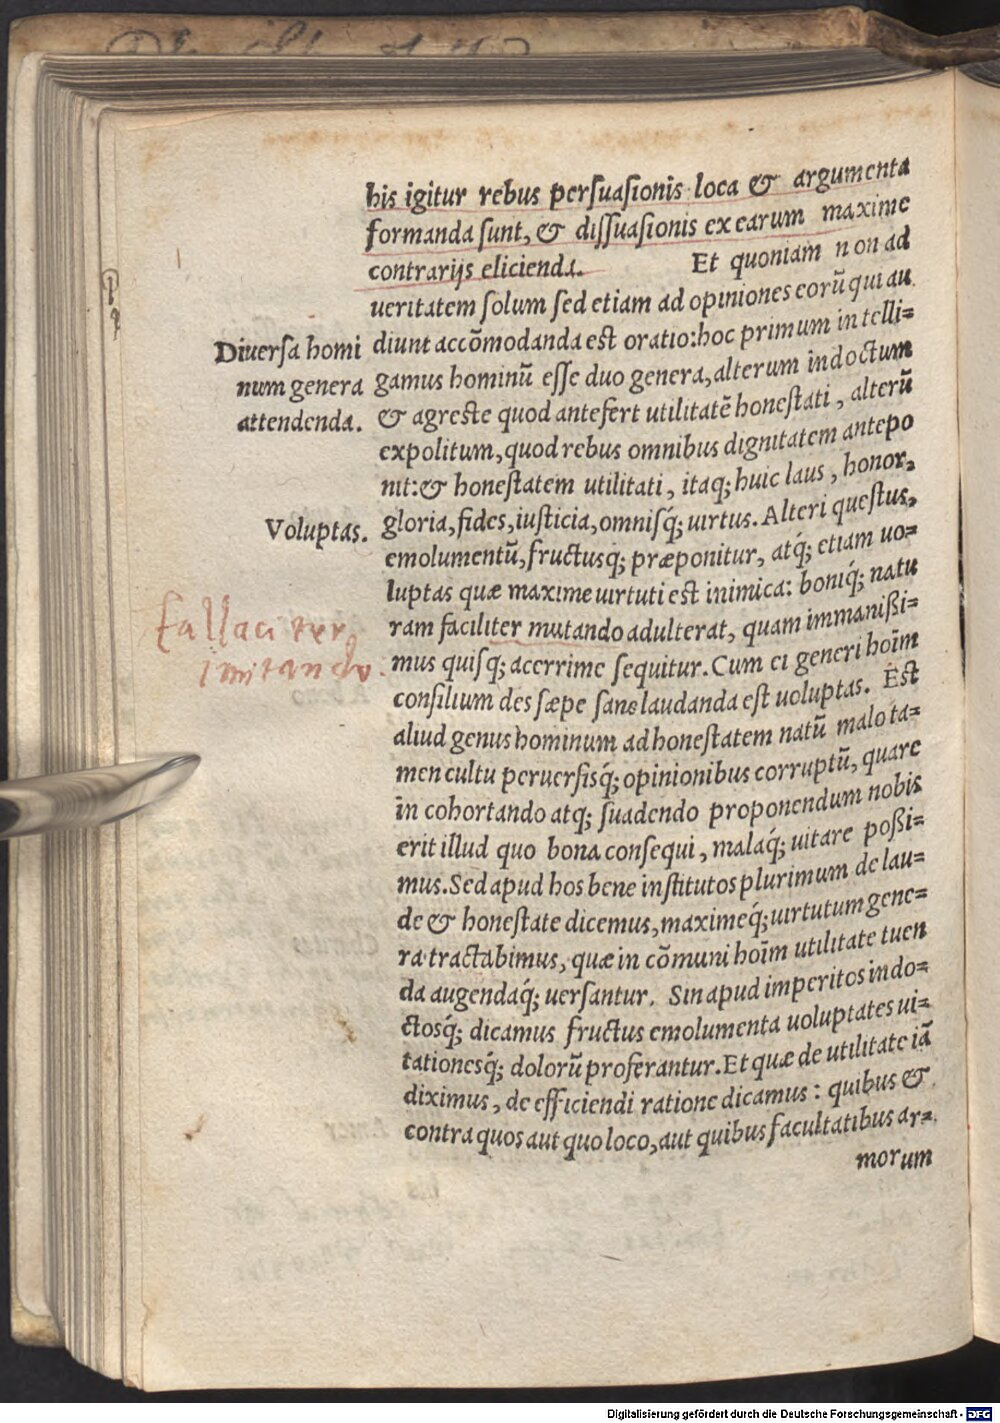 his igitur rebus persuasionis loca & argumenta
formanda sunt, & dissuasionis ex earum maxime
contrarijs elicienda. Et quoniam non ad
ueritatem solum sed etiam ad opiniones eorũ qui au
Diuersa homi
num genera
attendenda.
diunt accõmodanda est oratio:hoc primum intelli=
gamus hominũ esse duo genera, alterum indoctum
& agreste quod antefert utilitatẽ honestati, alterũ
expolitum, quod rebus omnibus dignitatem antepo
nit:& honestatem utilitati, itaq; huic laus, honor,
Voluptas.
gloria, fides, iusticia, omnisq́; uirtus. Alteri questus,
emolumentũ, fructusq; præponitur, atq́; etiam uo=
luptas quæ maxime uirtuti est inimica: boniq́; natu
fallaciter
imitando
ram faciliter mutando adulterat, quam immanißi=
mus quisq; acerrime sequitur. Cum ei generi hoĩm
consilium des sæpe sane laudanda est uoluptas. Est
aliud genus hominum ad honestatem natũ malo ta=
men cultu peruersisq́; opinionibus corruptũ, quare
in cohortando atq; suadendo proponendum nobis
erit illud quo bona consequi, malaq́; uitare poßi=
mus. Sed apud hos bene institutos plurimum de lau=
de & honestate dicemus, maximeq́; uirtutum gene=
ra tractabimus, quæ in cõmuni hoĩm utilitate tuen
da augendaq́; uersantur. Sin apud imperitos indo=
ctosq́; dicamus fructus emolumenta uoluptates ui=
tationesq́; dolorũ proferantur. Et quæ de utilitate iã
diximus, de efficiendi ratione dicamus : quibus &
contra quos aut quo loco, aut quibus facultatibus ar=
morum
Digitalisierung gefördert durch die Deutsche Forschungsgemeinschaft - DFG